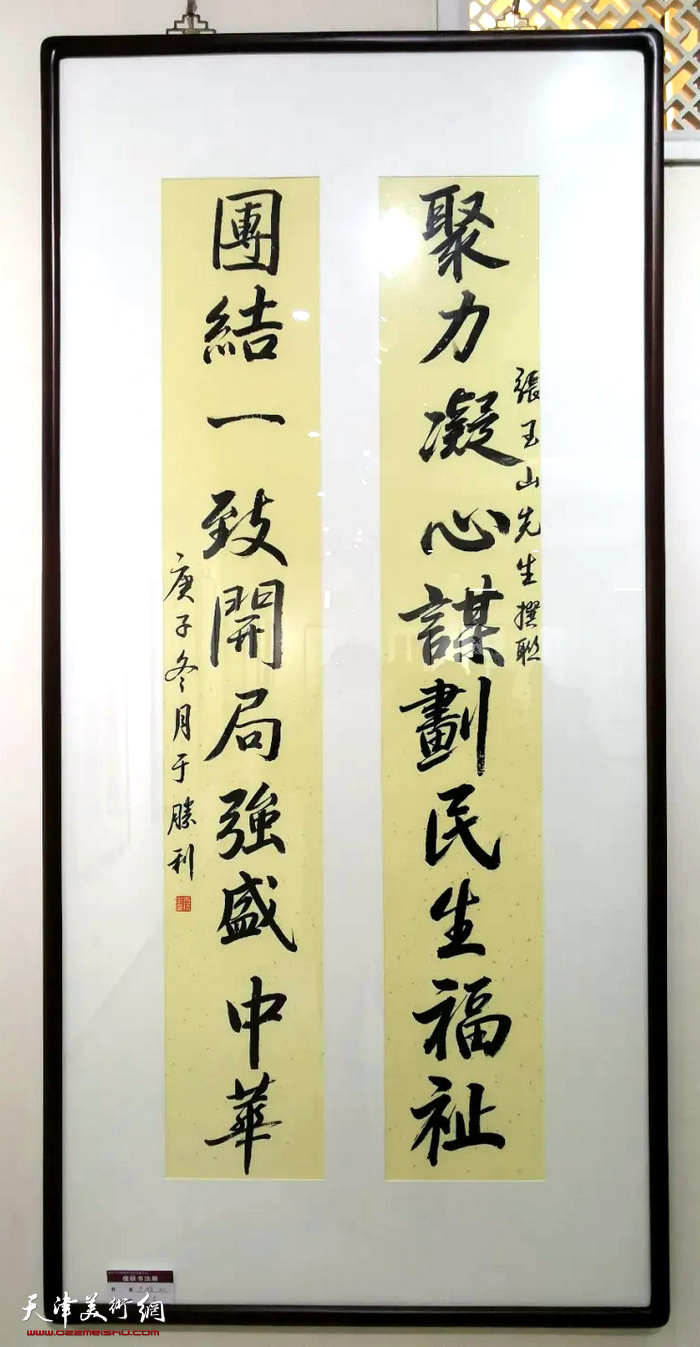 聚力凝心謀劃民生福祉
張玉山先生撰联
團結一致開局強盛中華
庚子冬月于勝利
楹联书法展
天津美術網
www.022meishu.com